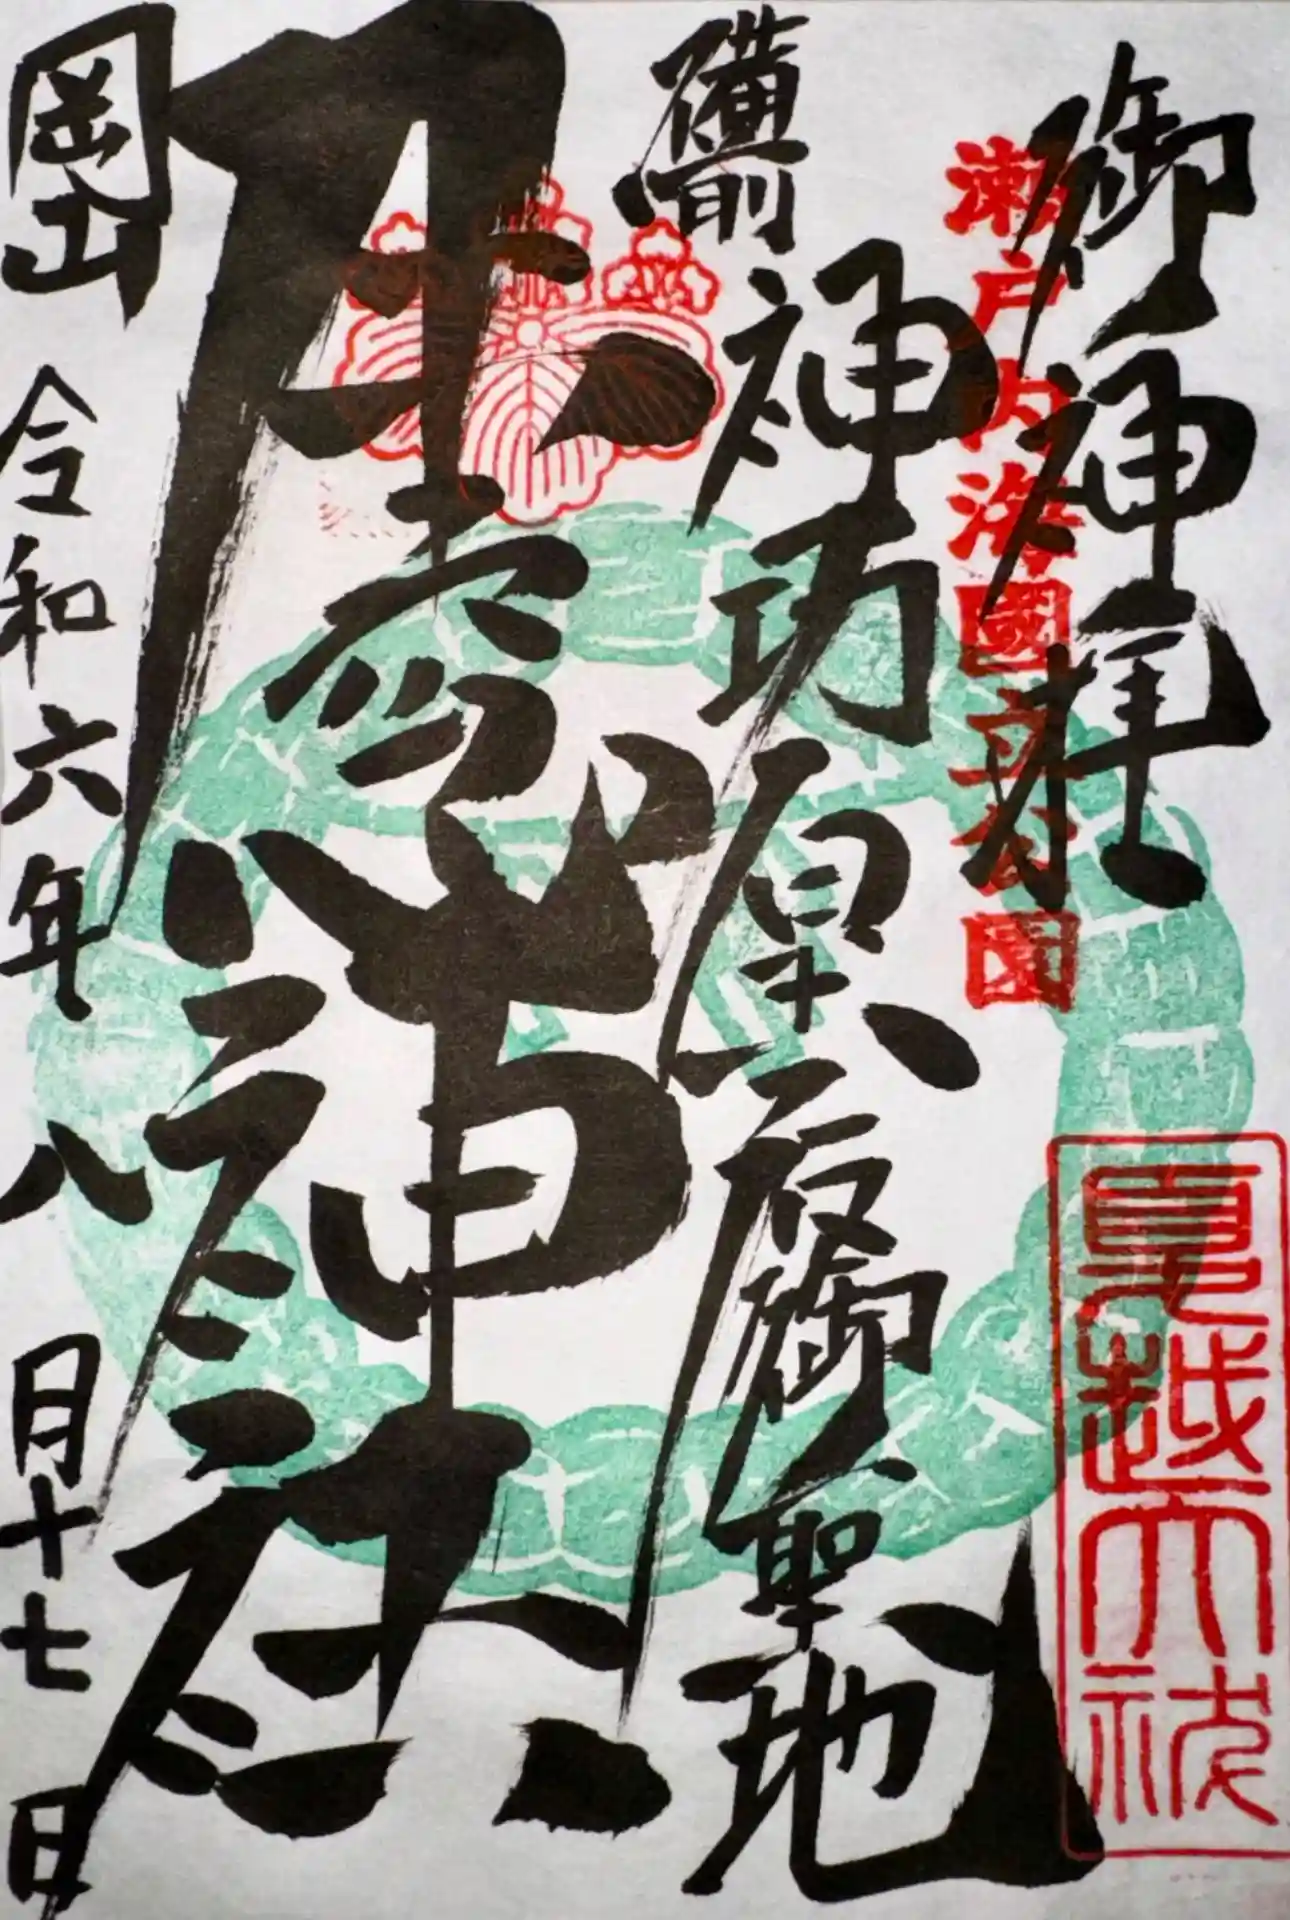 御神拝
瀬戸内海國立公園
夏越大祓
備前 神功皇后御聖地
牛窓神社
岡山 令和六年八月十七日